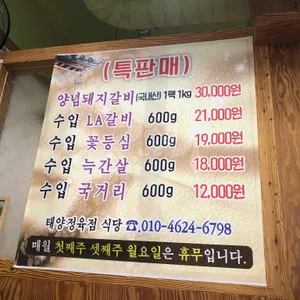 (특판매)
양념돼지갈비(국내산) 1팩 1kg 30,000원
수입 LA갈비 600g 21,000원
수입 꽃등심 600g 19,000원
수입 늑간살 600g 18,000원
수입 국거리 600g 12,000원
태양정육점 식당 ☎010-4624-6798
매월 첫째주 셋째주 월요일은 휴무입니다.